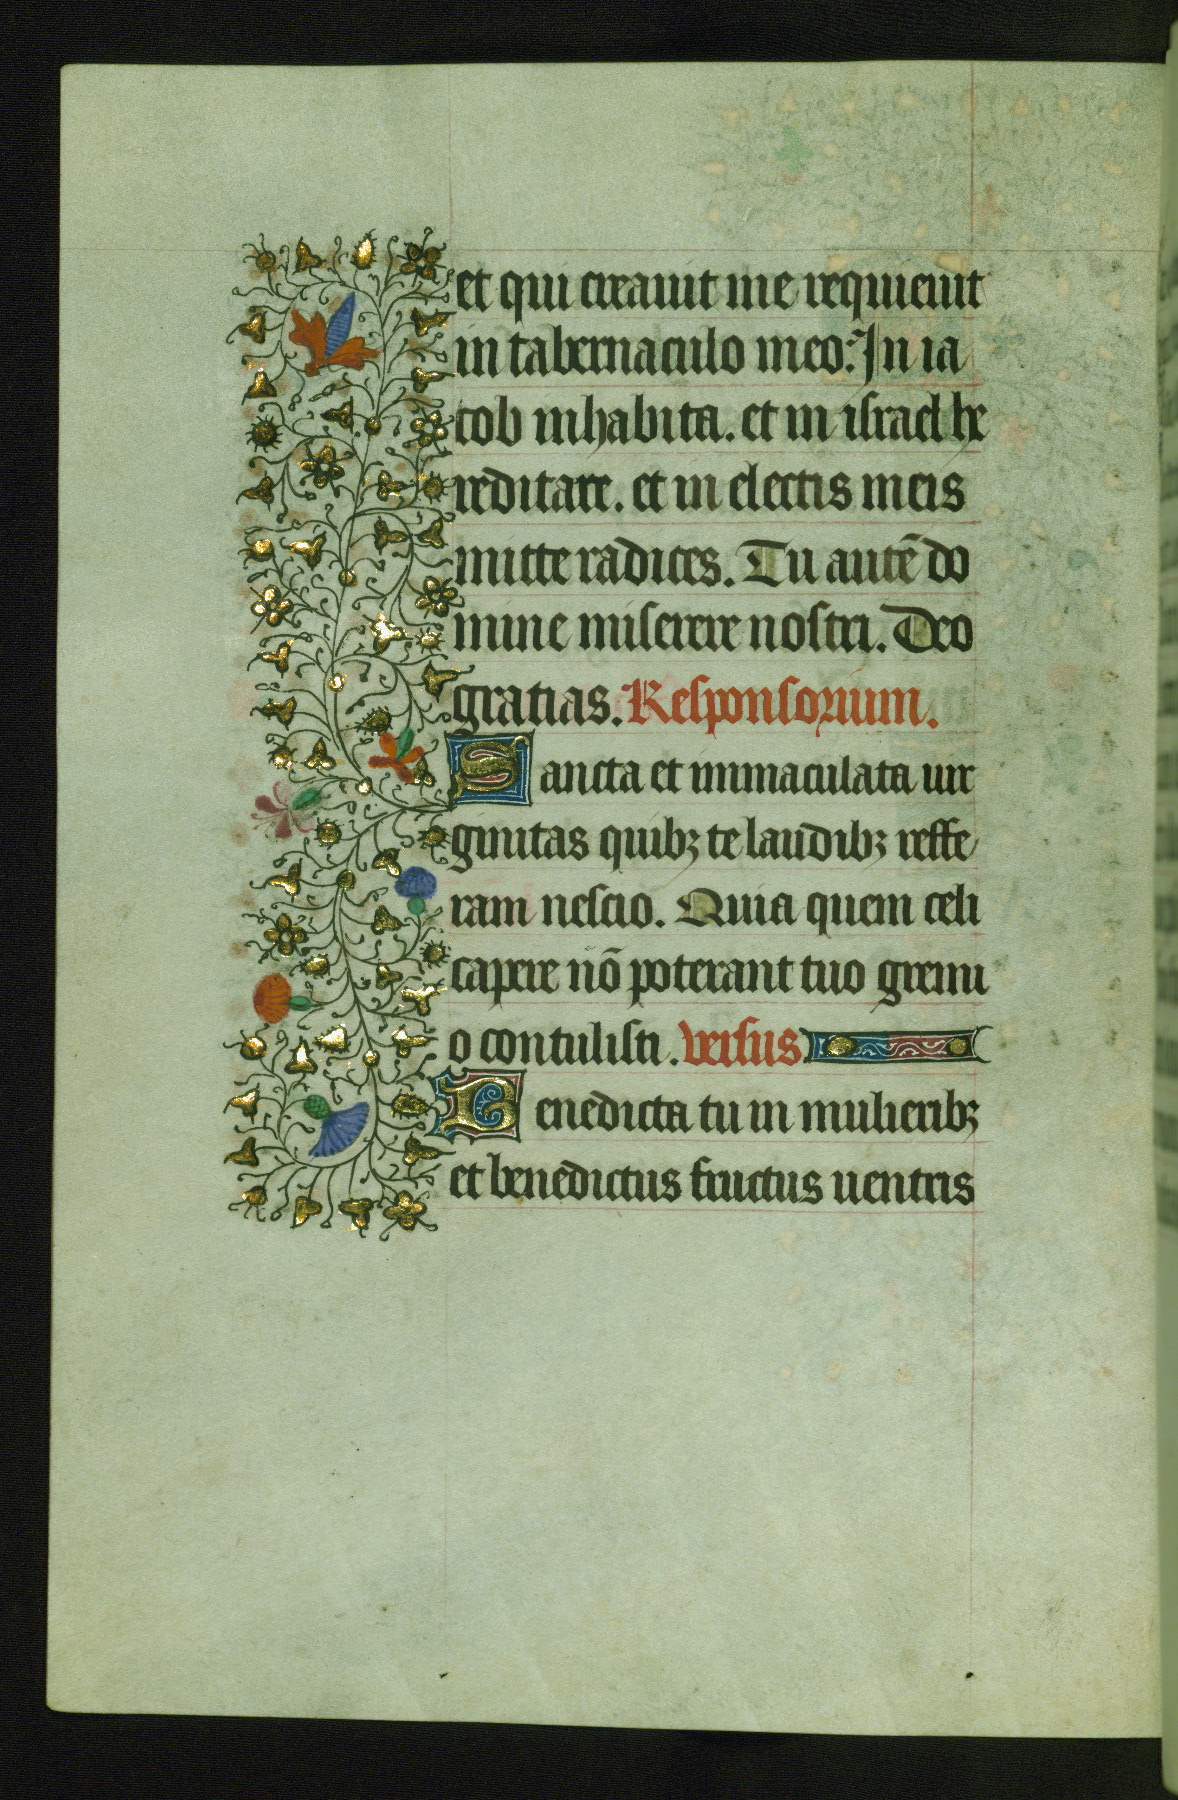 et qui creauit me requieuit
in tabernaculo meo: In ia
cob inhabita. et in israel he
reditare. et in electis meis
mitte radices. Tu autē do
mine miserere nostri. Deo
gratias. Responsorium.
Sancta et immaculata uir
ginitas quibꝫ te laudibꝫ reffe
ram nescio. Quia quem celi
capere nō poterant tuo gremi
o contulisti. versus
Benedicta tu in mulieribꝫ
et benedictus fructus uentris